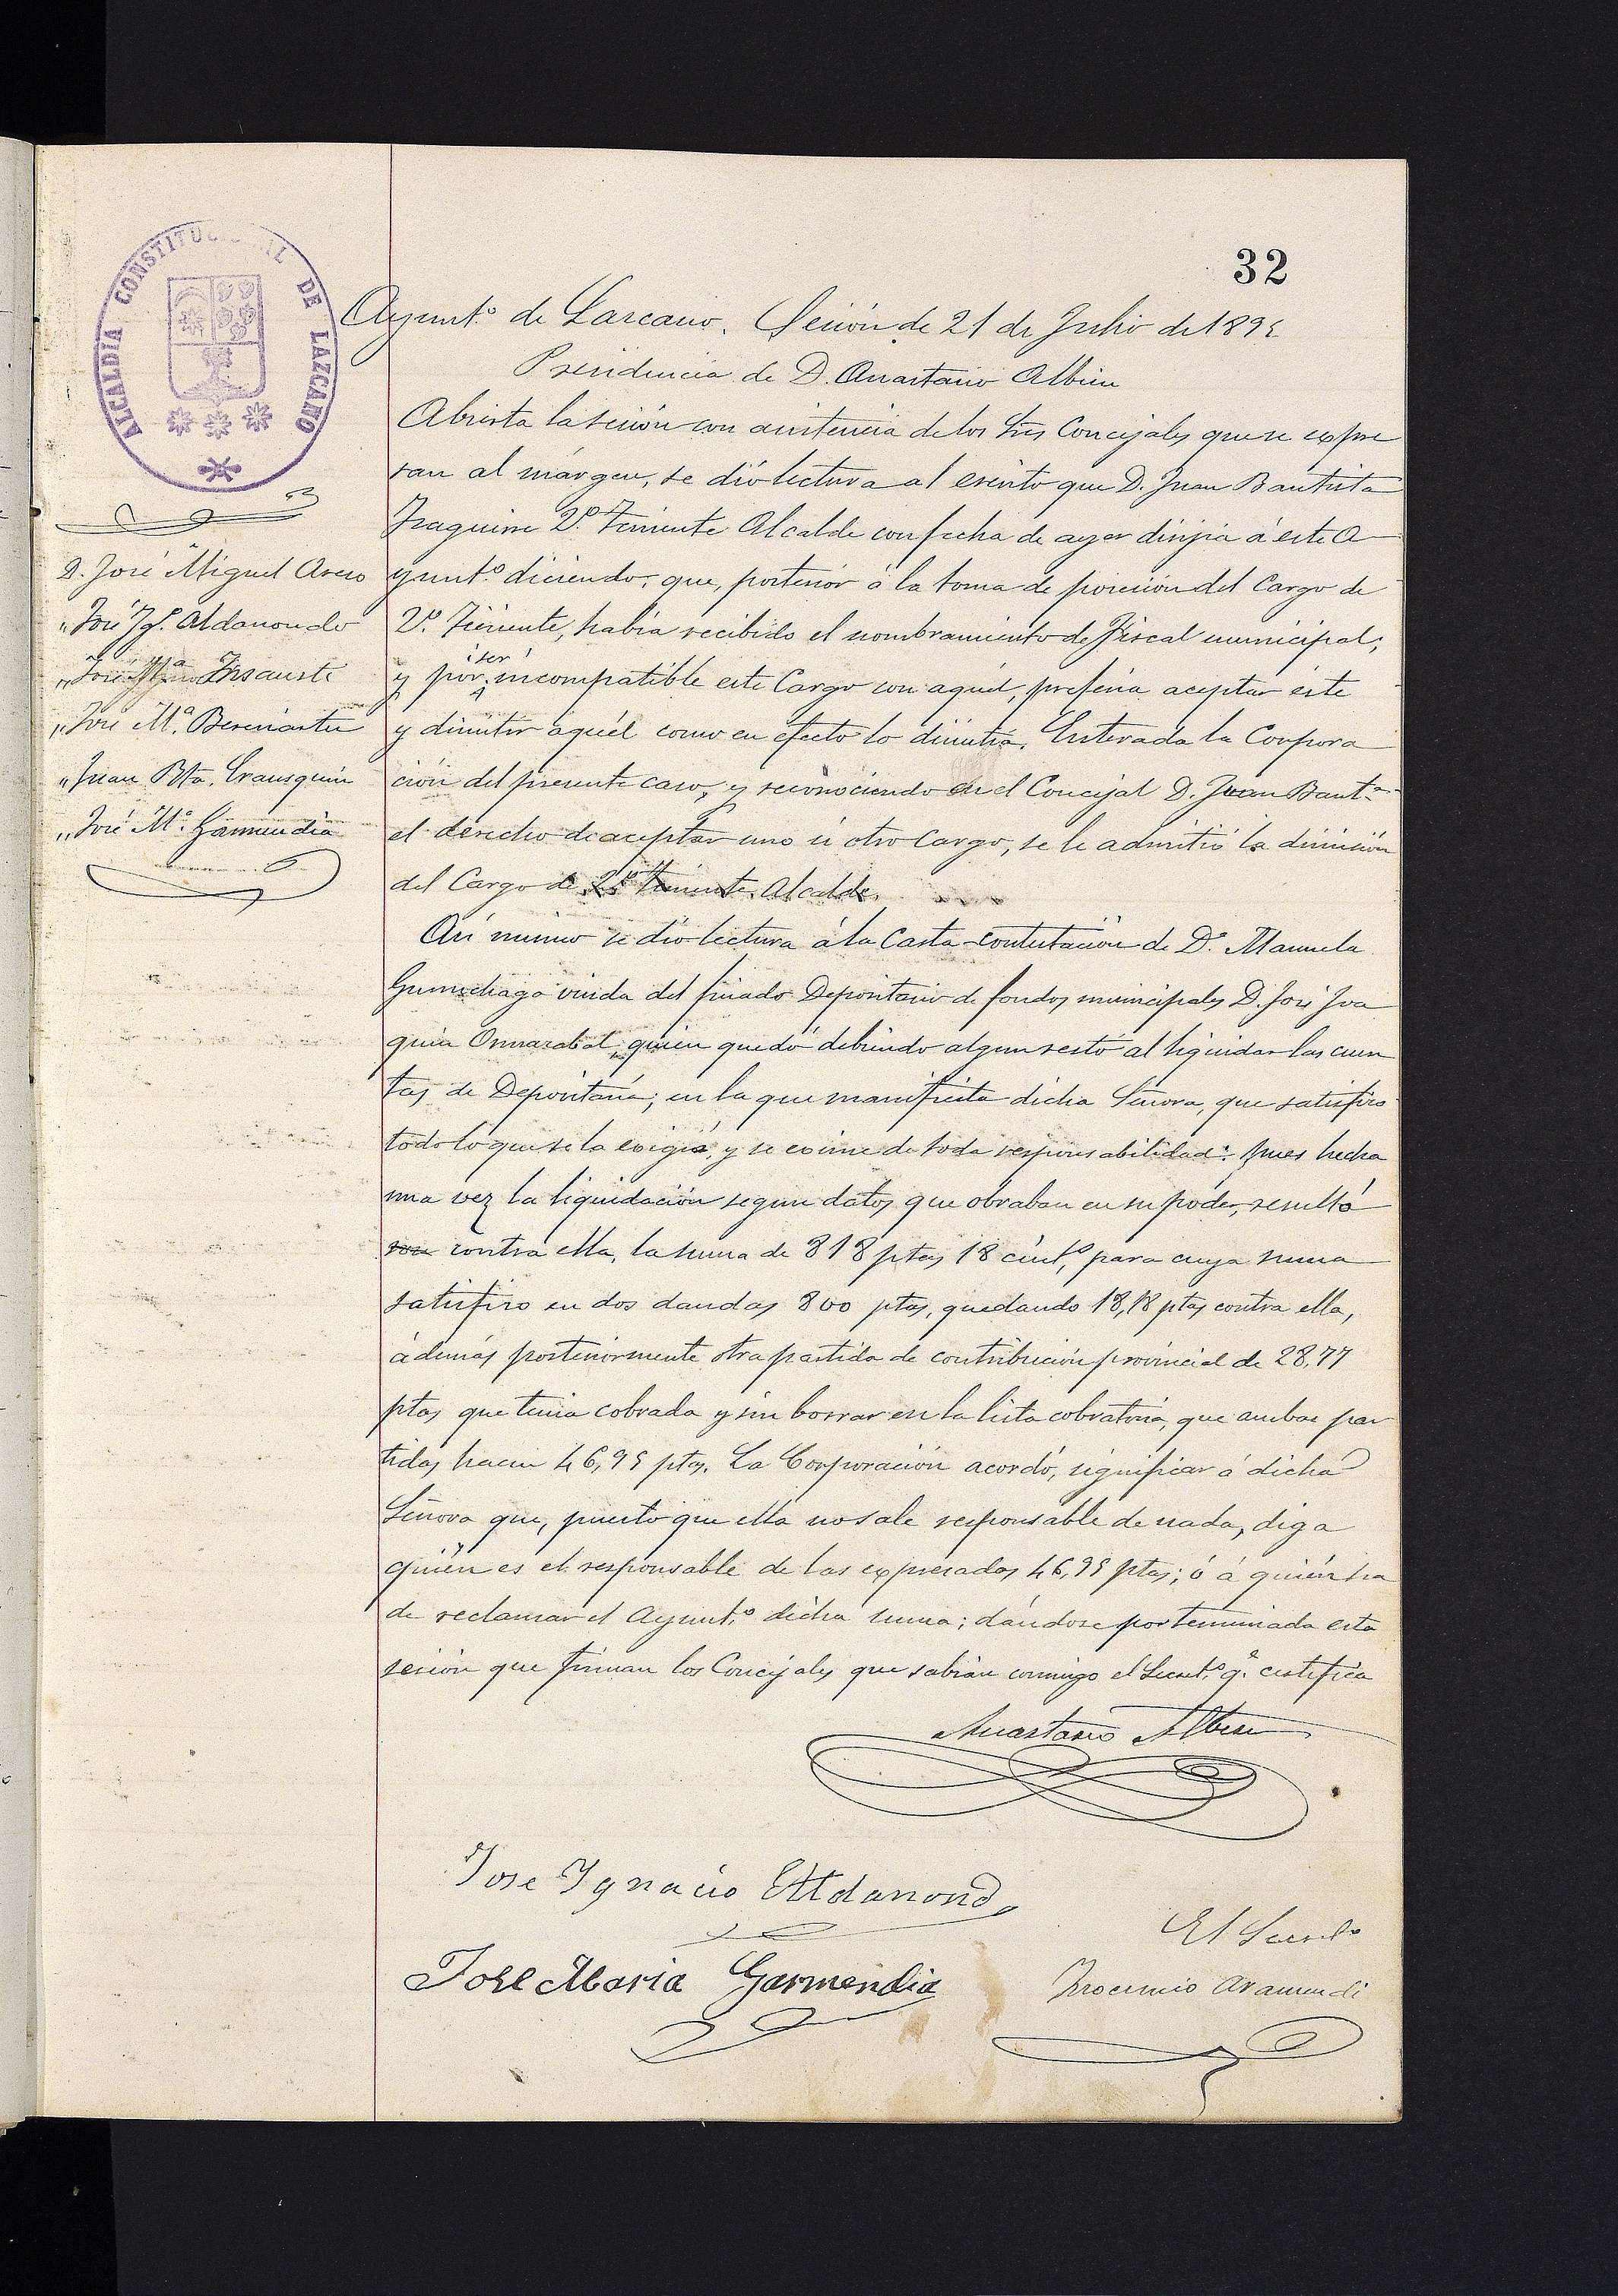 32
ALCALDÍA CONSTITUCIONAL DE LAZCANO
Ayunt.º de Lazcano. Sesión de 21 de Julio de 1895
Presidencia de D. Anastasio Albisu
D. José Miguel Areso
" José Ig.º Aldanondo
" José M.ª Insausti
" José M.ª Beresiartu
" Juan Bta. Erausquin
" José M.ª Garmendia
Abierta la sesión con asistencia de los Sres Concejales que se expre
san al márgen, se dió lectura al escrito que D. Juan Bautista
Izaguirre 2.º Teniente Alcalde con fecha de ayer dirijía á este A
yunt.º diciendo; que, posterior á la toma de posesión del Cargo de
2.º Teniente, había recibido el nombramiento de Fiscal municipal;
y por ser incompatible este Cargo con aquél, prefería aceptar éste
y dimitir aquél como en efecto lo dimitía. Enterada la Corpora
ción del presente caso, y reconociendo en el Concejal D. Juan Baut.ª
el derecho de aceptar uno ú otro Cargo, se le admitió la dimisión
del Cargo de 2.º Teniente Alcalde.
Asi mismo se dió lectura á la Carta-contestación de D.ª Manuela
viuda del finado Depositario de fondos municipales D. José Joa
quin Ormazabal, quien quedó debiendo algun resto al liquidar las cuen
tas de Depositaría; en la que manifiesta dicha Señora, que satisfizo
todo lo que se la exigía, y se exime de toda responsabilidad: pues hecha
una vez la liquidación segun datos que obraban en su poder, resultó
contra ella, la suma de 818 ptas 18 cént.º, para cuya suma
satisfizo en dos dandas 800 ptas, quedando 18,18 ptas contra ella,
además posteriormente otra partida de contribución provincial de 28,77
ptas que tenia cobrada y sin borrar en la lista cobratoria, que ambas par
tidas hacen 46,95 ptas. La Corporación acordó, significar á dicha
Señora que, puesto que ella no sale responsable de nada, diga
quién es el responsable de las expresadas 46,95 ptas; ó á quién ha
de reclamar el Ayunt.º dicha suma; dándose por terminada esta
sesión que firman los Concejales que sabían conmigo el Secret.º q.e certifica
Anastasio Albisu
Jose Ygnacio Aldanondo
El Secret.º
Jose Maria Garmendia
Inocencio Aramendi